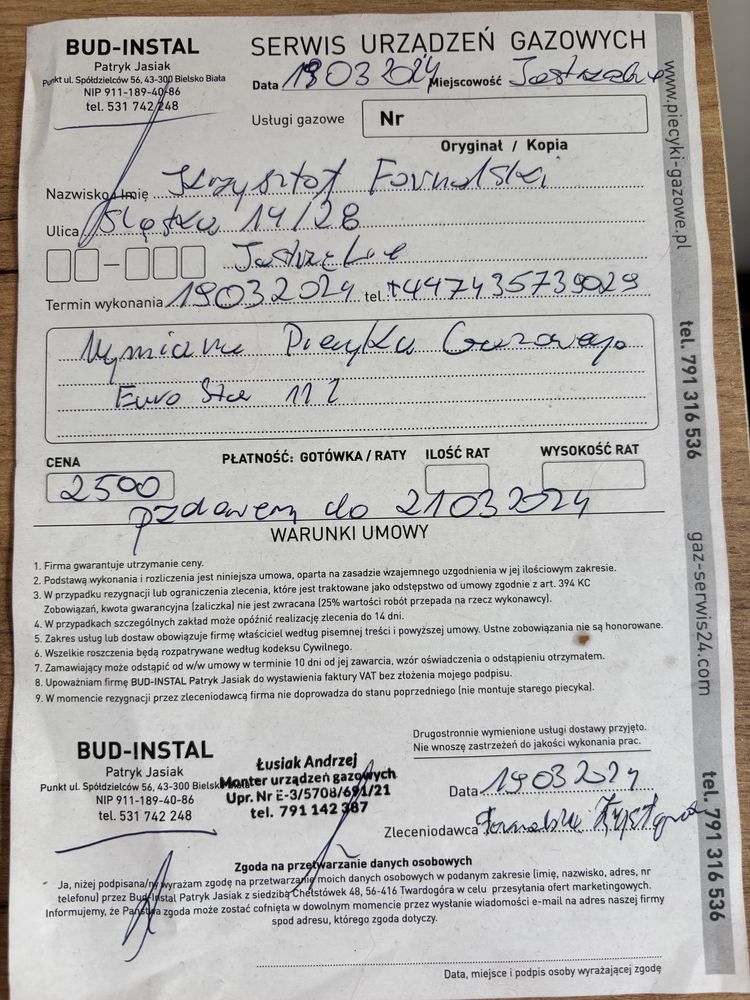 BUD-INSTAL
Patryk Jasiak
Punkt ul. Spółdzielców 56, 43-300 Bielsko Biała
NIP 911-189-40-86
tel. 531 742 248
SERWIS URZĄDZEŃ GAZOWYCH
Data 19 03 2024 Miejscowość Jastrzębie
Usługi gazowe Nr
Oryginał / Kopia
Nazwisko i Imię Krzysztof
Ulica Śląska 14/28
Jastrzębie
Termin wykonania 19 03 2024 tel. +447435739029
Wymiana Piecyka Gazowego
Euro Star 11 l
CENA PŁATNOŚĆ: GOTÓWKA / RATY ILOŚĆ RAT WYSOKOŚĆ RAT
2500
do 21 03 2024
WARUNKI UMOWY
1. Firma gwarantuje utrzymanie ceny.
2. Podstawą wykonania i rozliczenia jest niniejsza umowa, oparta na zasadzie wzajemnego uzgodnienia w jej ilościowym zakresie.
3. W przypadku rezygnacji lub ograniczenia zlecenia, które jest traktowane jako odstępstwo od umowy zgodnie z art. 394 KC
Zobowiązań, kwota gwarancyjna (zaliczka) nie jest zwracana (25% wartości robót przepada na rzecz wykonawcy).
4. W przypadkach szczególnych zakład może opóźnić realizację zlecenia do 14 dni.
5. Zakres usług lub dostaw obowiązuje firmę właściciel według pisemnej treści i powyższej umowy. Ustne zobowiązania nie są honorowane.
6. Wszelkie roszczenia będą rozpatrywane według kodeksu Cywilnego.
7. Zamawiający może odstąpić od w/w umowy w terminie 10 dni od jej zawarcia, wzór oświadczenia o odstąpieniu otrzymałem.
8. Upoważniam firmę BUD-INSTAL Patryk Jasiak do wystawienia faktury VAT bez złożenia mojego podpisu.
9. W momencie rezygnacji przez zleceniodawcą firma nie doprowadza do stanu poprzedniego (nie montuje starego piecyka).
BUD-INSTAL
Patryk Jasiak
Punkt ul. Spółdzielców 56, 43-300 Bielsko
NIP 911-189-40-86
tel. 531 742 248
Łusiak Andrzej
Monter urządzeń gazowych
Upr. Nr E-3/5708/691/21
tel. 791 142 387
Drugostronnie wymienione usługi dostawy przyjęto.
Nie wnoszę zastrzeżeń do jakości wykonania prac.
Data 19 03 2024
Zleceniodawca
Zgoda na przetwarzanie danych osobowych
Ja, niżej podpisana/ny wyrażam zgodę na przetwarzanie moich danych osobowych w podanym zakresie (imię, nazwisko, adres, nr
telefonu) przez Bud-Instal Patryk Jasiak z siedzibą Chełstówek 48, 56-416 Twardogóra w celu przesyłania ofert marketingowych.
Informujemy, że Państwa zgoda może zostać cofnięta w dowolnym momencie przez wysłanie wiadomości e-mail na adres naszej firmy
spod adresu, którego zgoda dotyczy.
Data, miejsce i podpis osoby wyrażającej zgodę
www.piecyki-gazowe.pl
tel. 791 316 536
gaz-serwis24.com
tel. 791 316 536